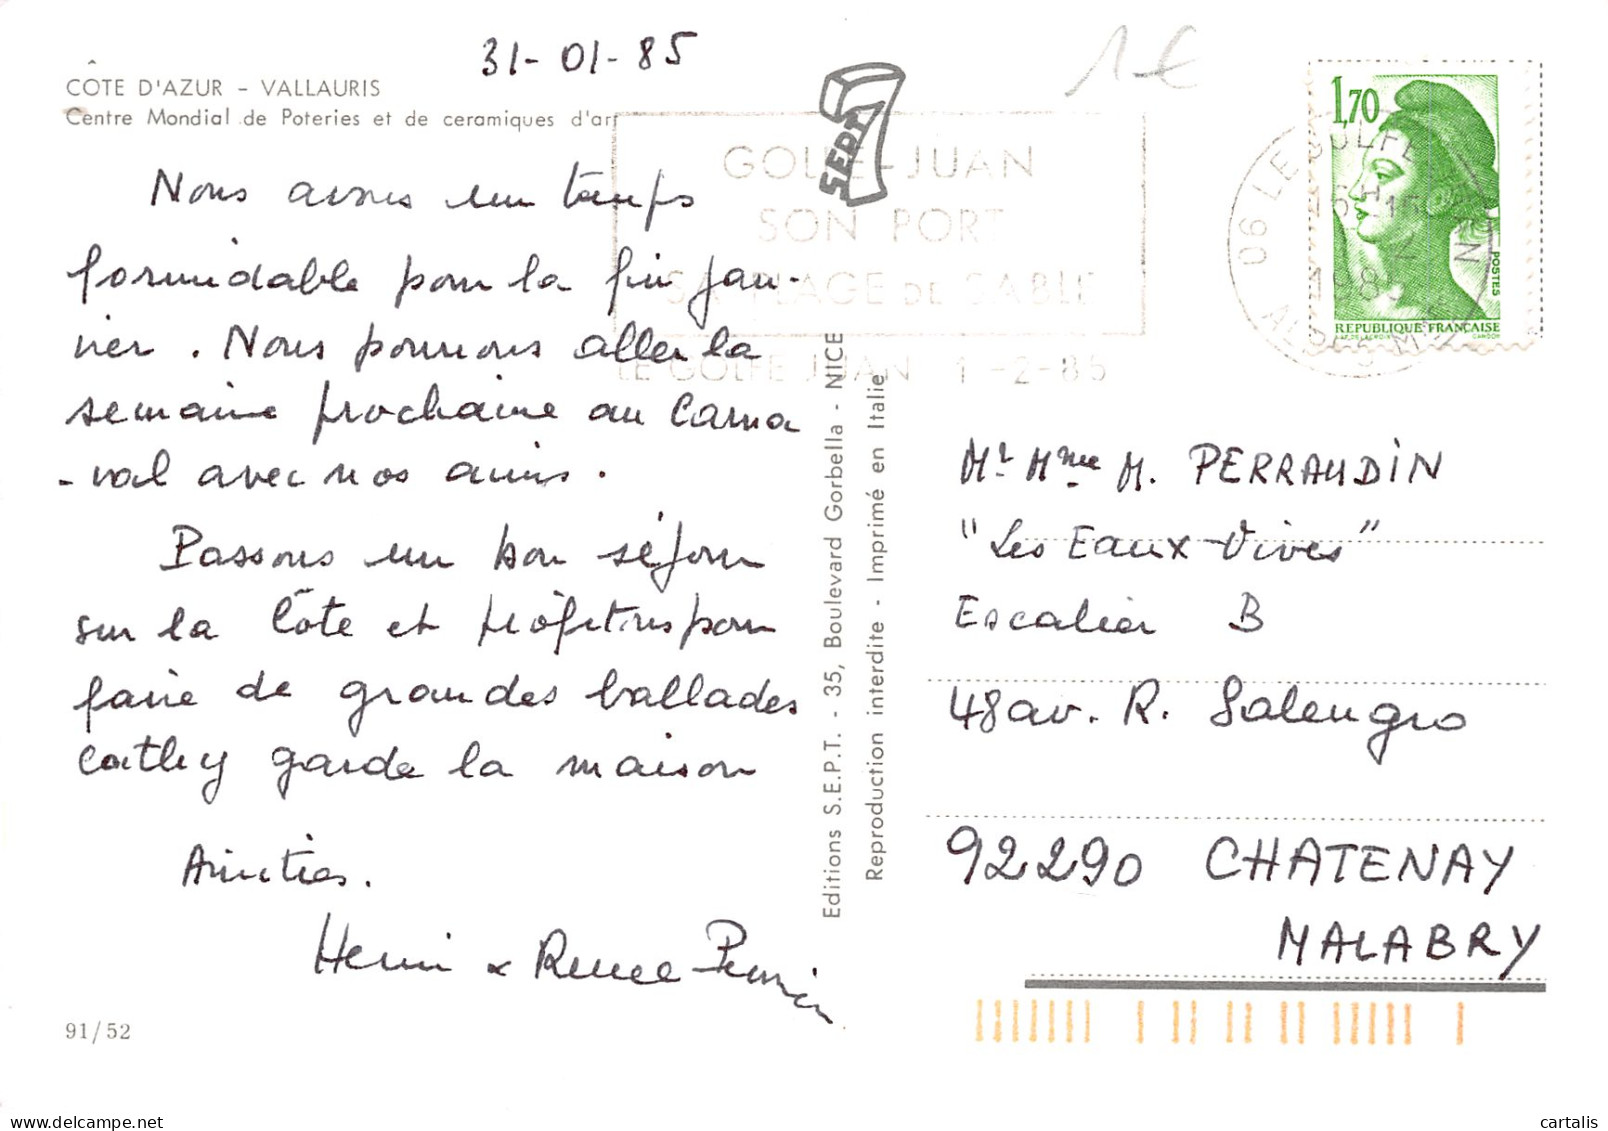 31-01-85
1€
CÔTE D'AZUR - VALLAURIS
Centre Mondial de Poteries et de ceramiques d'art
Nous avons un temps
formidable pour la fin jan-
vier. Nous pourrons aller la
semaine prochaine au Carna
-val avec nos amis.
Passons un bon séjour
sur la Côte et profitons pour
faire de grandes ballades
Cathy garde la maison
Amitiés.
Henri & Renee
91/52
SEPT
GOLFE-JUAN
SON PORT
SA PLAGE DE SABLE
LE GOLFE JUAN 1-2-85
Editions S.E.P.T. - 35, Boulevard Gorbella - NICE
Reproduction interdite - Imprimé en Italie
1,70
POSTES
REPUBLIQUE FRANÇAISE
06 LE GOLFE JUAN
16H15
1985
Mr Mme M. PERRAUDIN
"Les Eaux-Vives"
Escalier B
48 av. R. Salengro
92290 CHATENAY
MALABRY
cartalis